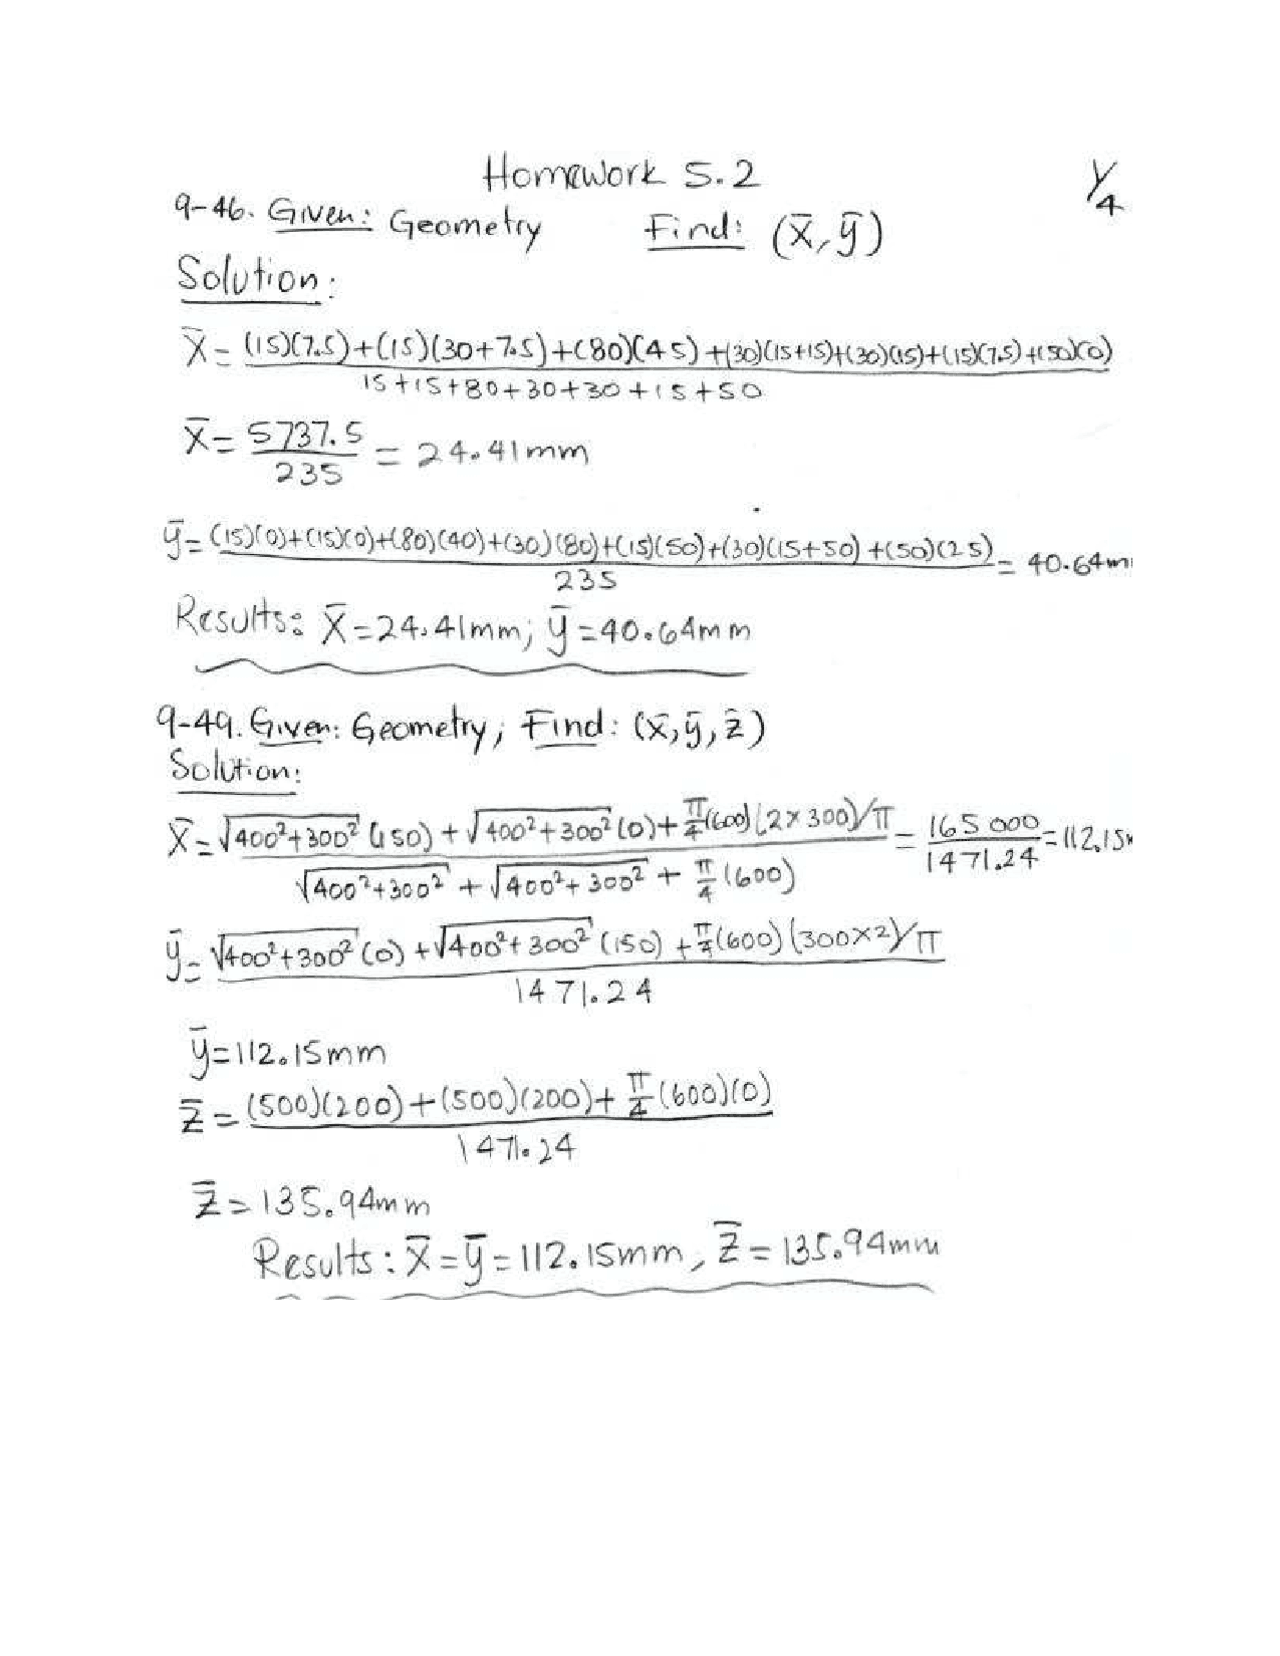 Homework 5.2 1/4
9-46. Given: Geometry Find: (x̄, ȳ)
Solution:
x̄ = (15)(7.5)+(15)(30+7.5)+(80)(45)+(30)(15+15)+(30)(15)+(15)(7.5)+(50)(0)
15+15+80+30+30+15+50
x̄ = 5737.5 / 235 = 24.41mm
ȳ = (15)(0)+(15)(0)+(80)(40)+(30)(80)+(15)(50)+(30)(15+50)+(50)(25) = 40.64m
235
Results: x̄ = 24.41mm; ȳ = 40.64mm
9-49. Given: Geometry; Find: (x̄, ȳ, z̄)
Solution:
x̄ = √400²+300² (150) + √400²+300² (0) + π/4 (600) (2×300)/π = 165 000 / 1471.24 = 112.15
√400²+300² + √400²+300² + π/4 (600)
ȳ = √400²+300² (0) + √400²+300² (150) + π/4 (600) (300×2)/π
1471.24
ȳ = 112.15mm
z̄ = (500)(200)+(500)(200)+ π/4 (600)(0)
1471.24
z̄ = 135.94mm
Results: x̄ = ȳ = 112.15mm, z̄ = 135.94mm